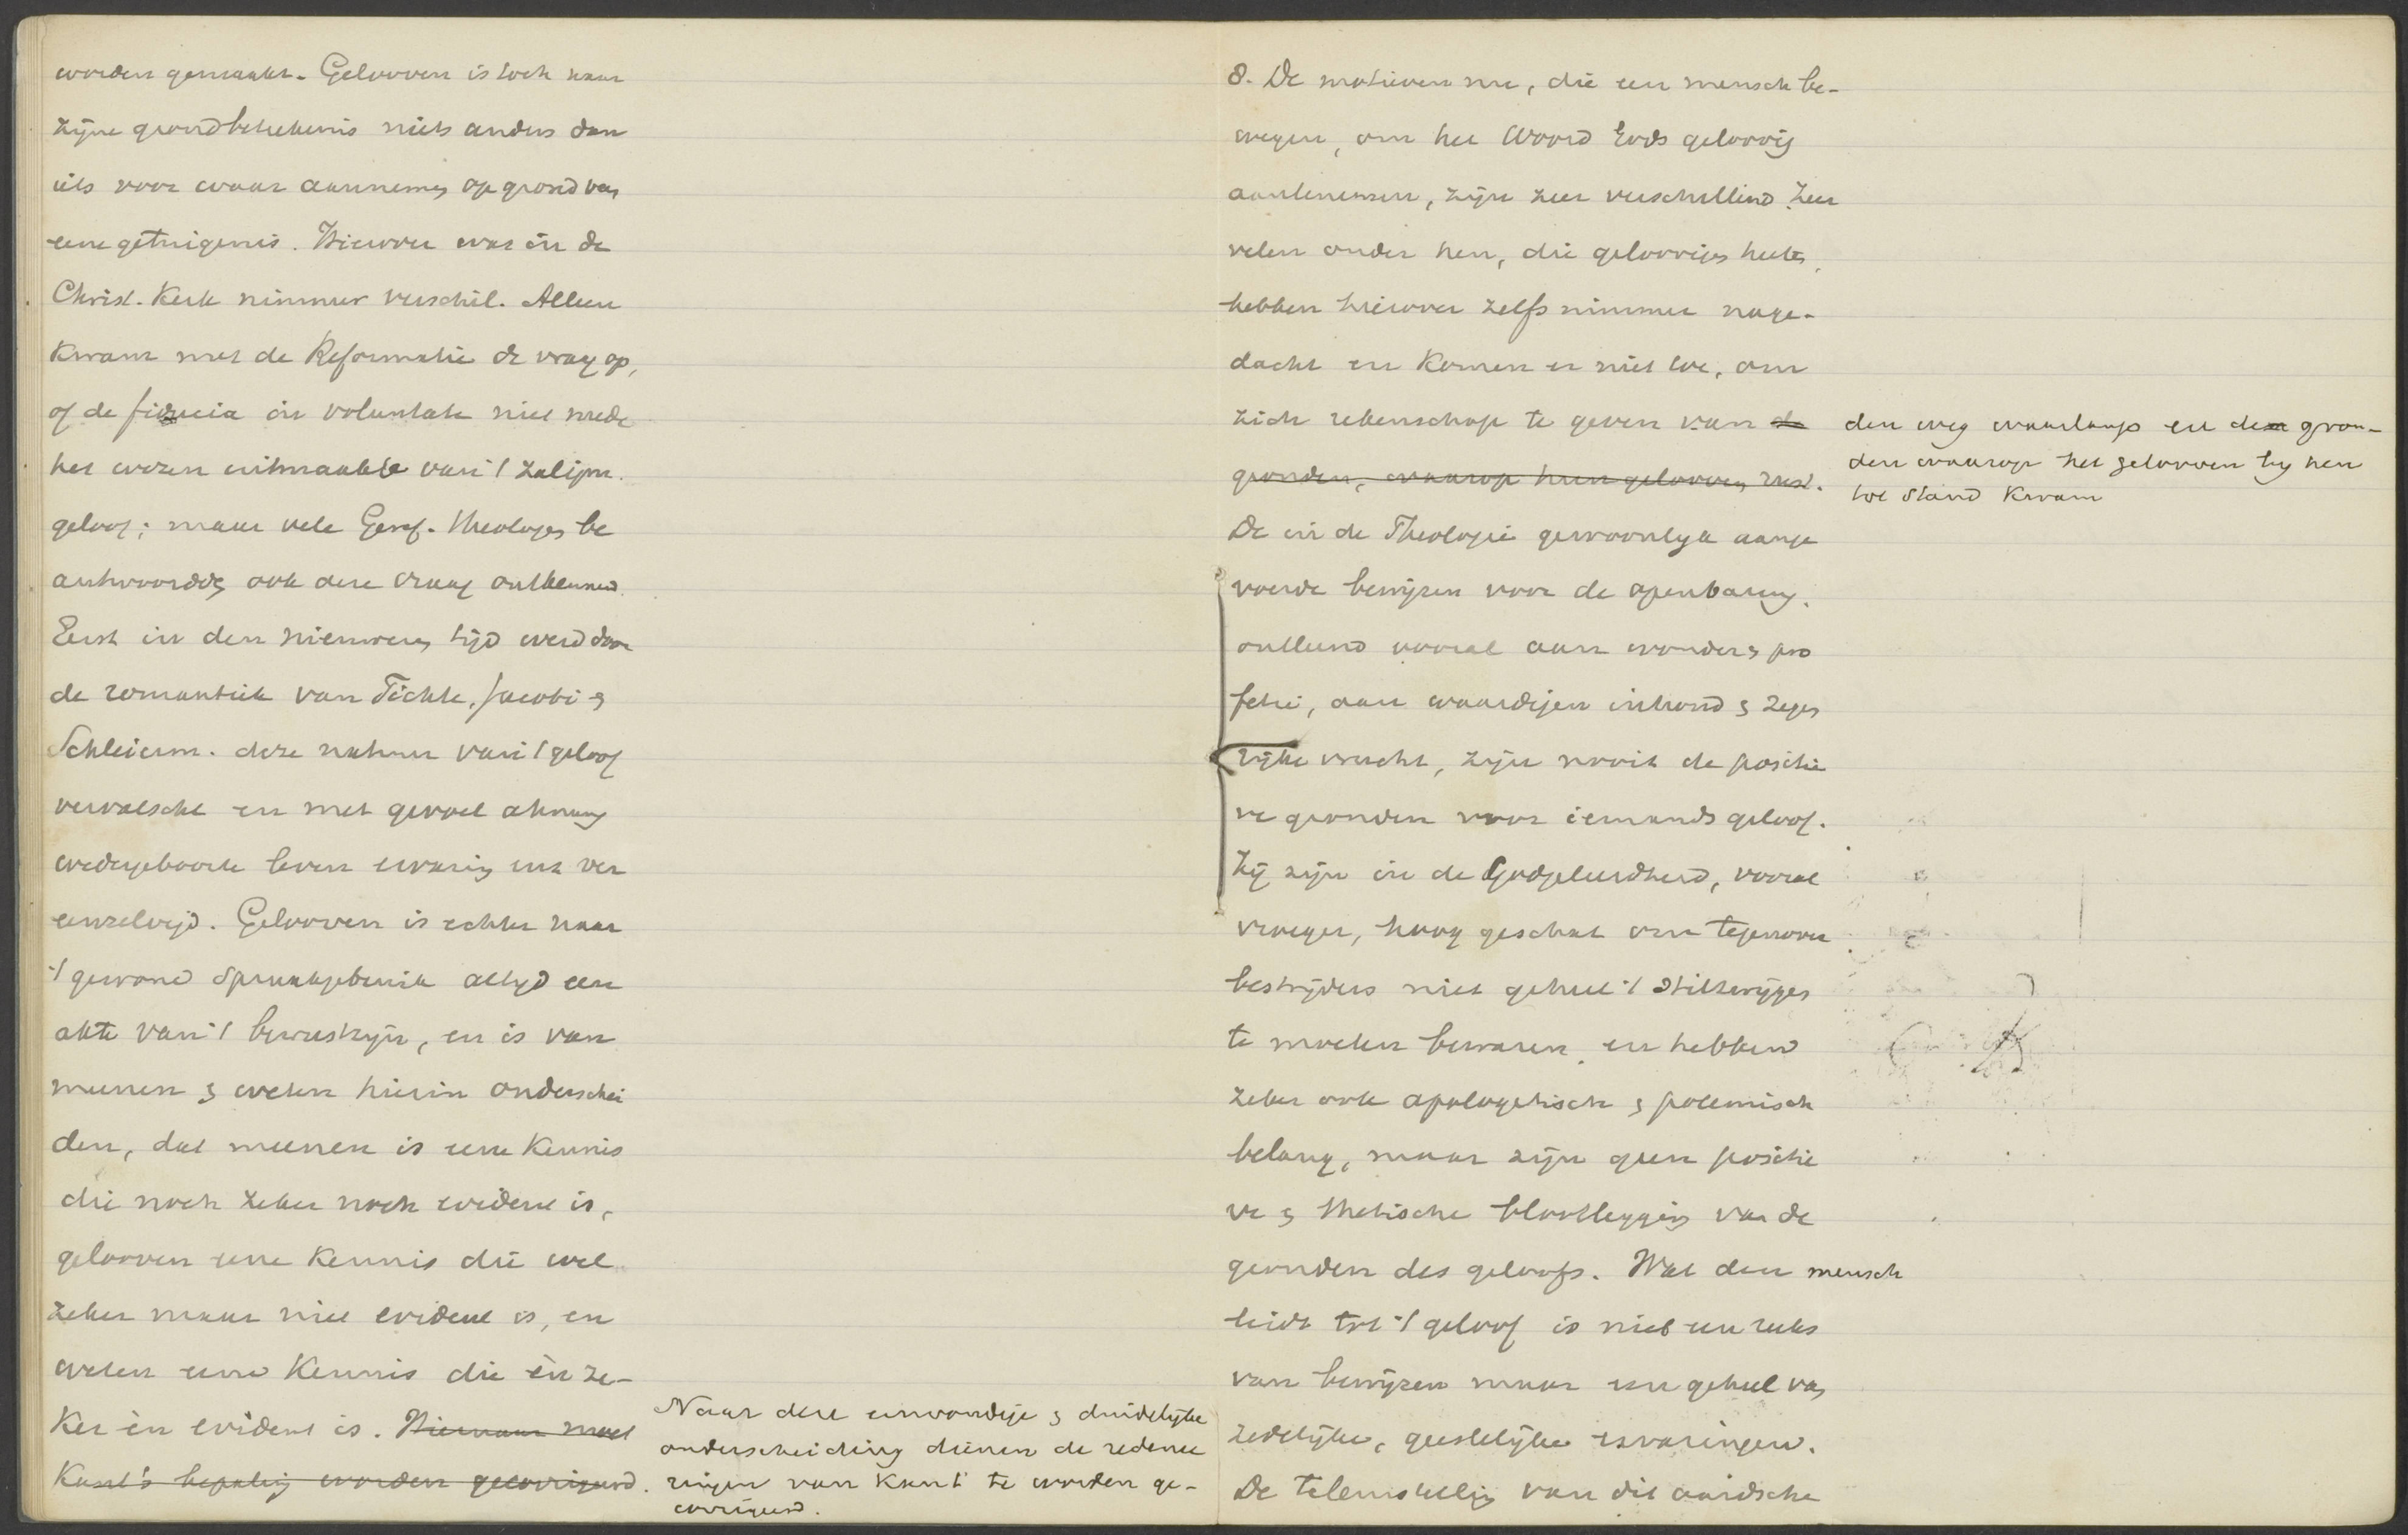 worden gemaakt. Gelooven is toch naar
zijne grondbeteekenis niets anders dan
iets voor waar aannemen op grond van
eene getuigenis. Hierover was in de
Christ. Kerk nimmer verschil. Alleen
kwam met de Reformatie de vraag op,
of de fiducia in voluntate niet mede
het wezen uitmaakte van 't zaligm.
geloof; maar vele Geref. theologen be
antwoordden ook deze vraag ontkennend.
Eerst in den nieuweren tijd werd door
de romantiek van Fichte, Jacobi &
Schleierm. deze natuur van 't geloof
vervalscht en met gevoel ahnung
wedergeboorte leven ervaring enz ver
eenzelvigd. Gelooven is echter naar
't gewone Spraakgebruik altijd een
akte van 't bewustzijn, en is van
meenen & weten hierin onderschei
den, dat meenen is eene kennis
die noch zeker noch evident is,
gelooven eene kennis die wel
zeker maar niet evident is, en
weten eene kennis die èn ze-
ker èn evident is. Hiernaar moet
Kant's bepaling worden gecorrigeerd.
Naar deze eenvoudige & duidelijke
onderscheiding dienen de redenee
ringen van Kant te worden ge-
corrigeerd.
8. De motieven nu, die een mensch be-
wegen, om het Woord Gods geloovig
aantenemen, zijn zeer verschillend. Zeer
velen onder hen, die geloovigen heeten,
hebben hierover zelfs nimmer nage-
dacht en komen er niet toe, om
zich rekenschap te geven van de
gronden, waarop hun gelooven rust.
den weg waarlangs en de gron-
den waarop het gelooven bij hen
tot stand kwam
De in de Theologie gewoonlijk aange
voerde bewijzen voor de openbaring,
ontleend vooral aan wonder & pro
fetie, aan waardigen inhoud & zege
rijke vrucht, zijn nooit de positie
ve gronden voor iemands geloof.
Zij zijn in de Godgeleerdheid, vooral
vroeger, hoog geschat om tegenover
bestrijders niet geheel 't stilzwijgen
te moeten bewaren, en hebben
zeker ook apologetisch & polemisch
belang, maar zijn geen positie
ve & thetische blootlegging van de
gronden des geloofs. Wat den mensch
leidt tot 't geloof is niet een reeks
van bewijzen maar een geheel van
zedelijke, geestelijke ervaringen.
De teleurstelling van dit aardsche